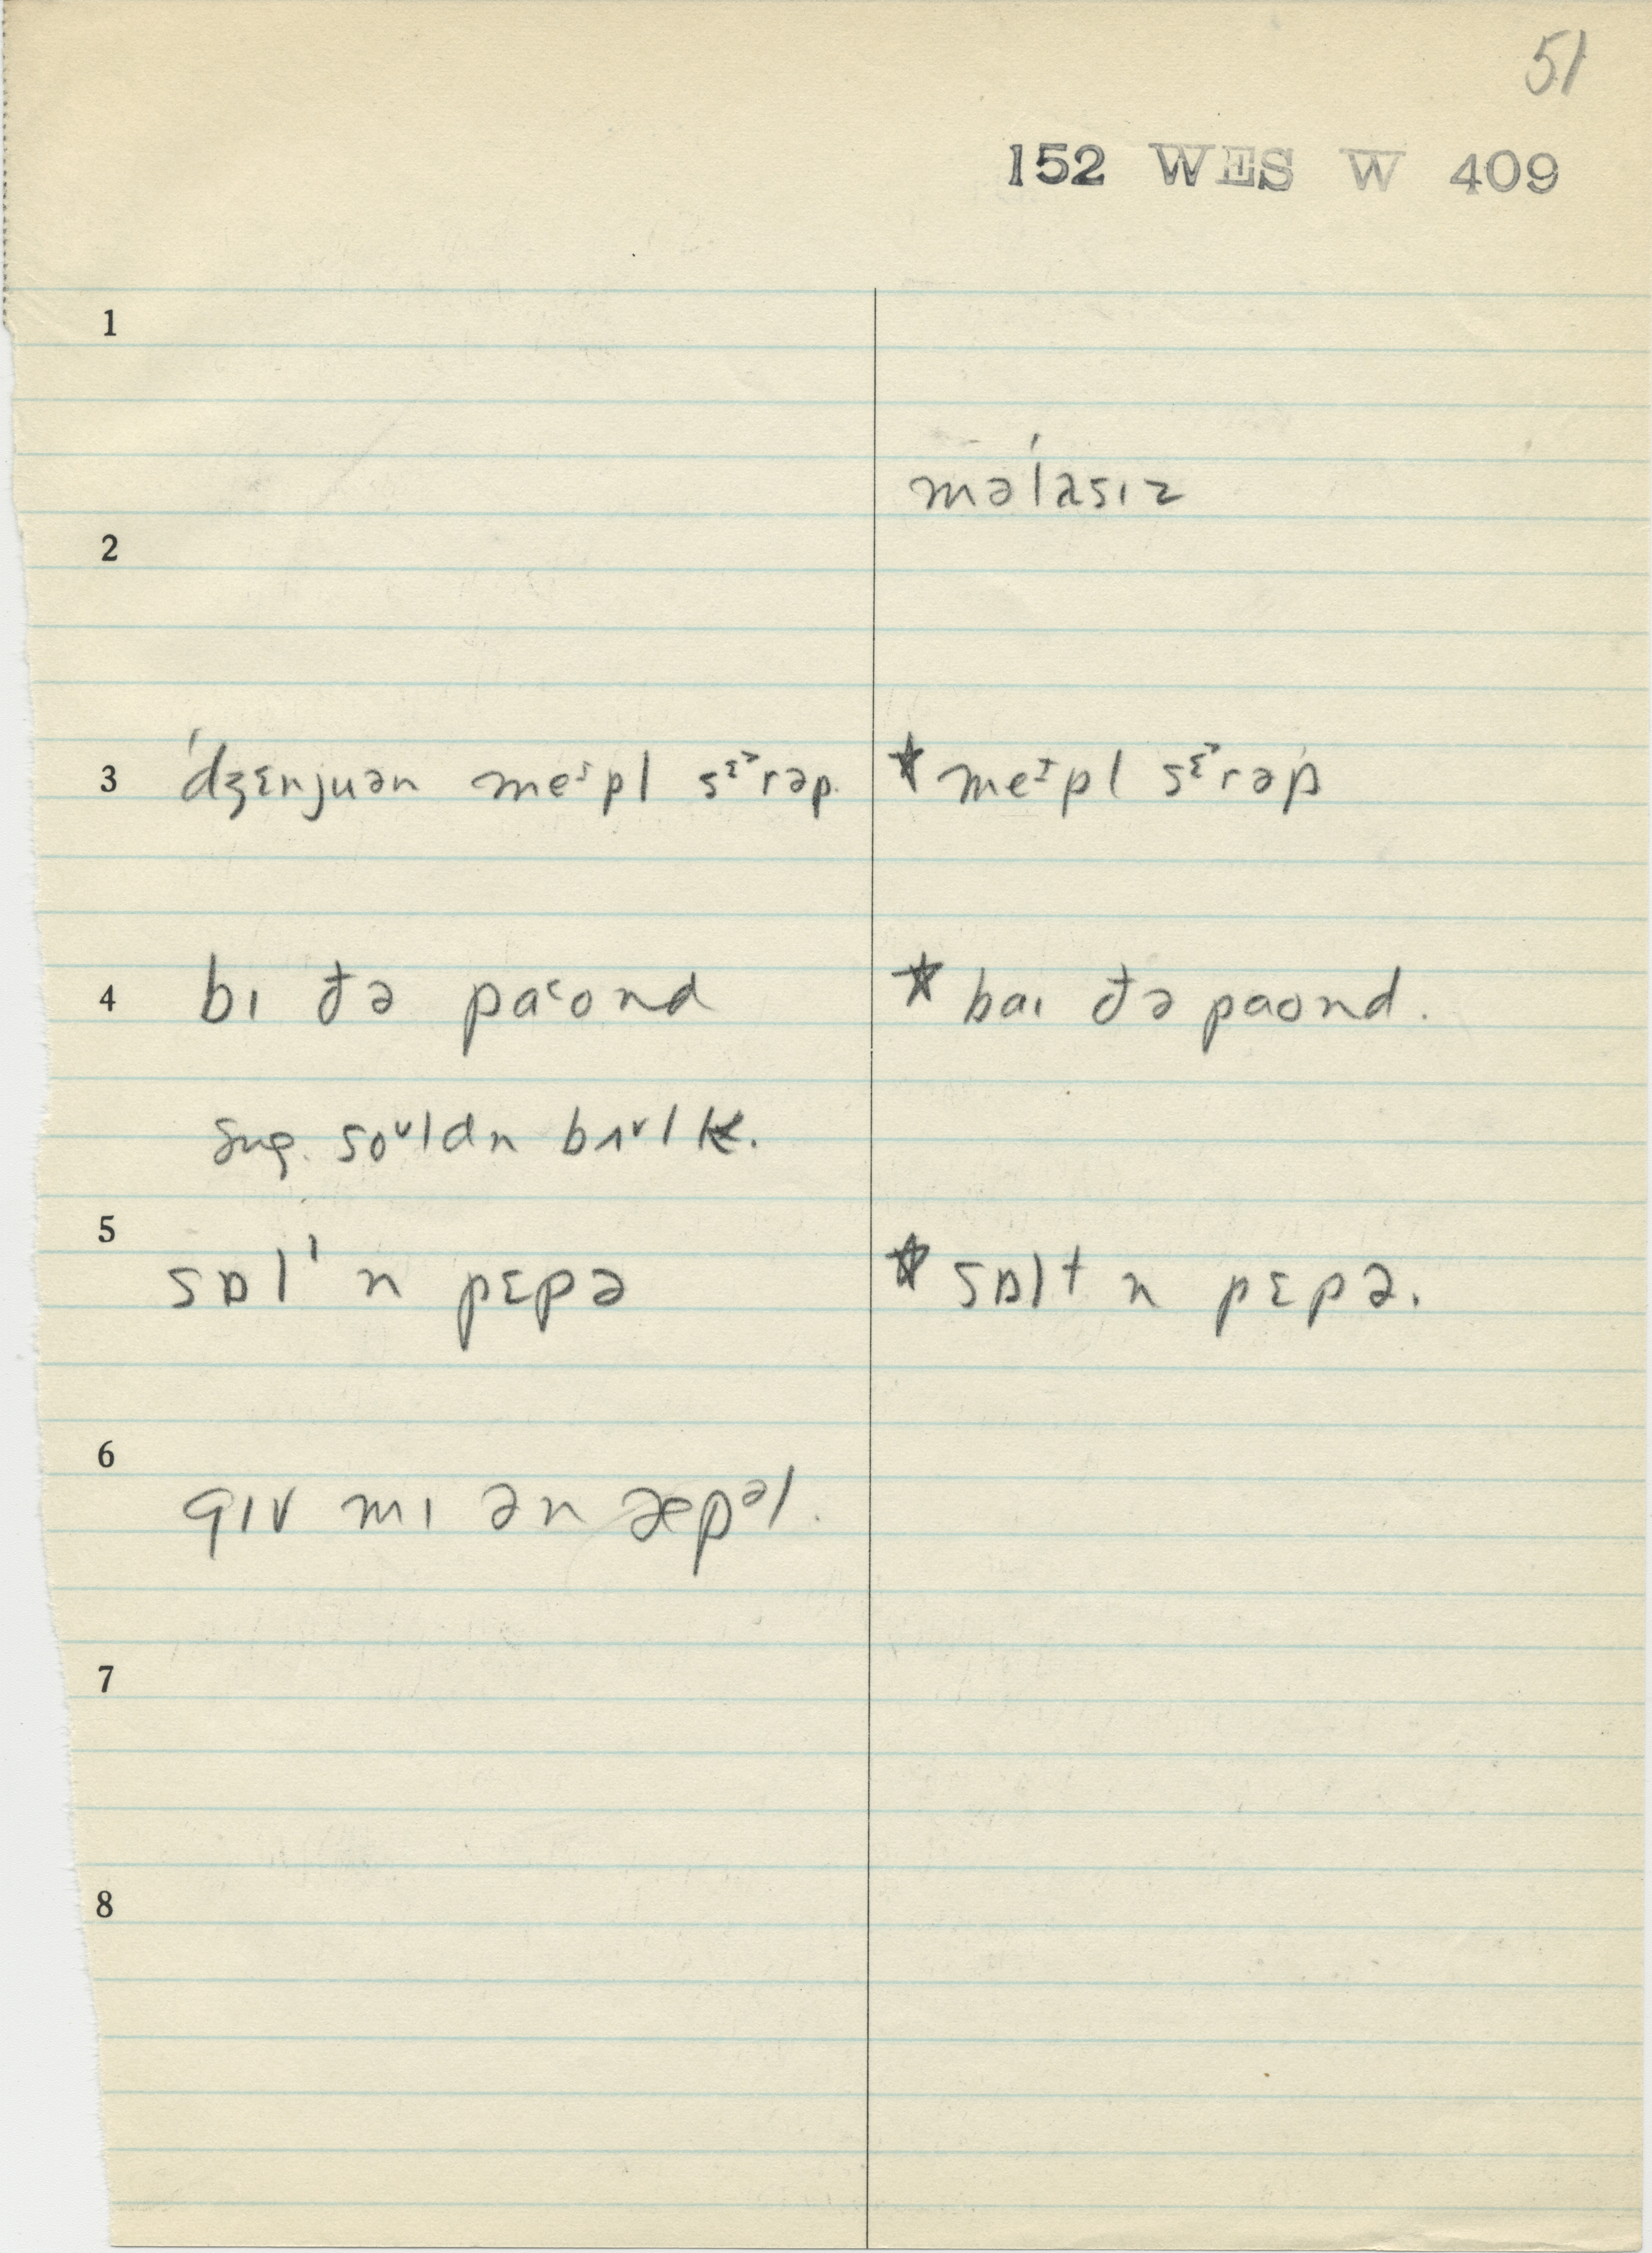 51
152 WES W 409
1
məˈlasɪz
2
3 ˈdʒɛnjuən meᶦpl sᵋᵊrəp. ★ meᶦpl sᵋᵊrəp
4 bɪ ðə paᵋond ★ baɪ ðə paond.
sug. soᵛldn bʌᵛlk.
5
sɒlˈ n pɛpə ★ sɒlt n pɛpə.
6
gɪv mɪ ən æpᵊl.
7
8